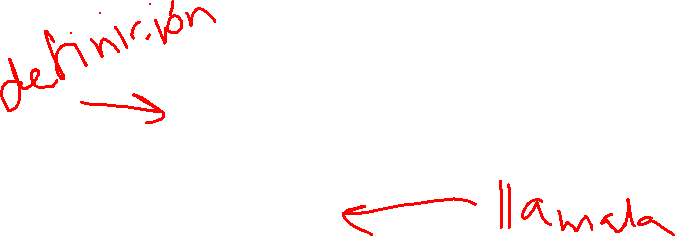 definición
llamada